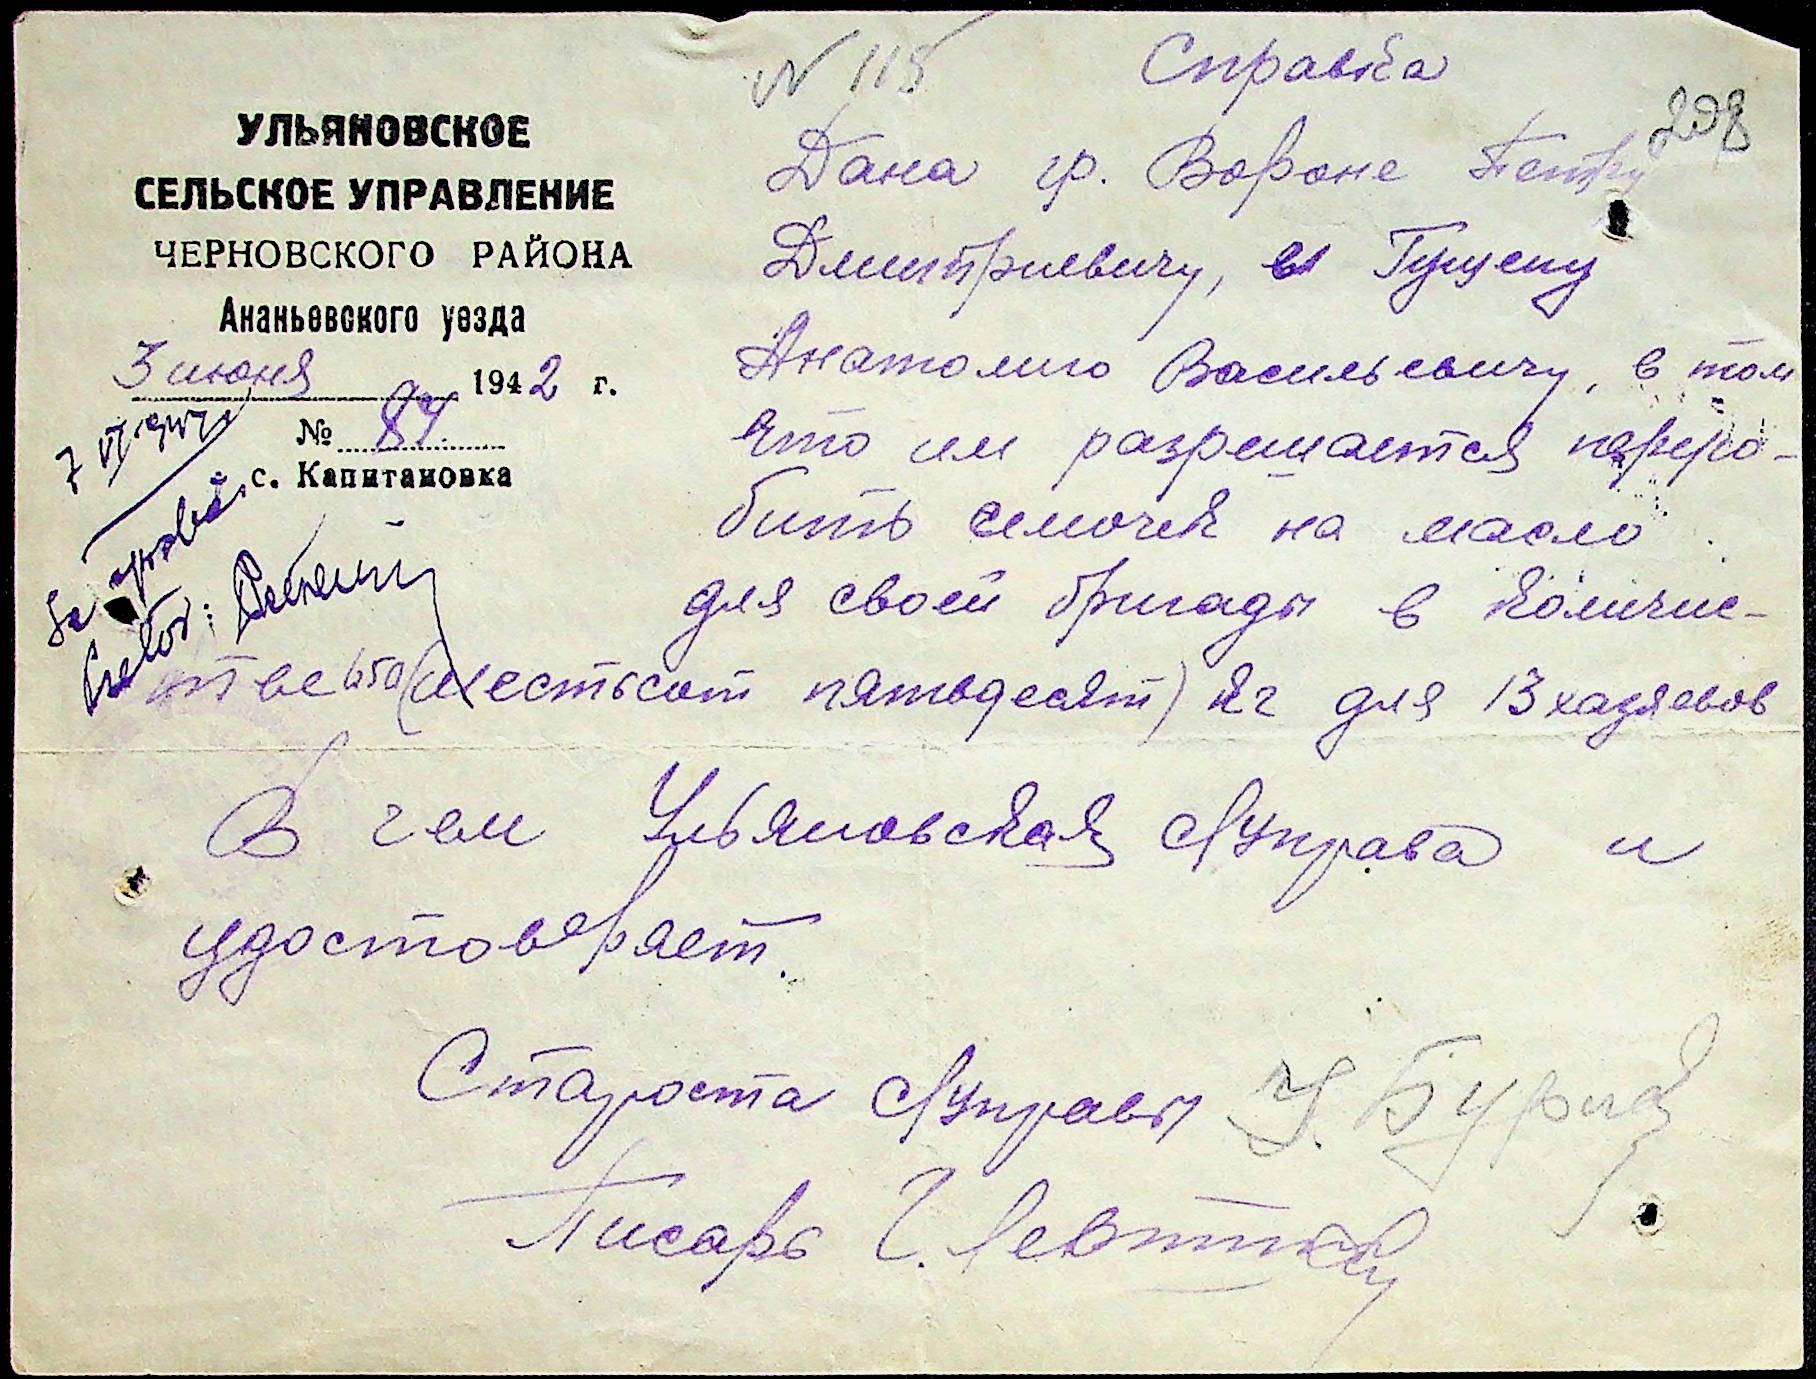 УЛЬЯНОВСКОЕ
СЕЛЬСКОЕ УПРАВЛЕНИЕ
ЧЕРНОВСКОГО РАЙОНА
Ананьевского уезда
3 июня 1942 г.
№ 87
с. Капитановка
7 VI
№ 115
Справка
298
Дана гр. Вороне Петру
Дмитриевичу, и Гущену
Анатолию Васильевичу, в том
что им разрешается перро-
бить симочек на масло
для своей бригады в количис-
тве 650 (шестьсот пятьдесят) кг для 13 хазяевов
В чем Ульяновская с/управа и
удостоверяет.
Староста с/управы
Писарь